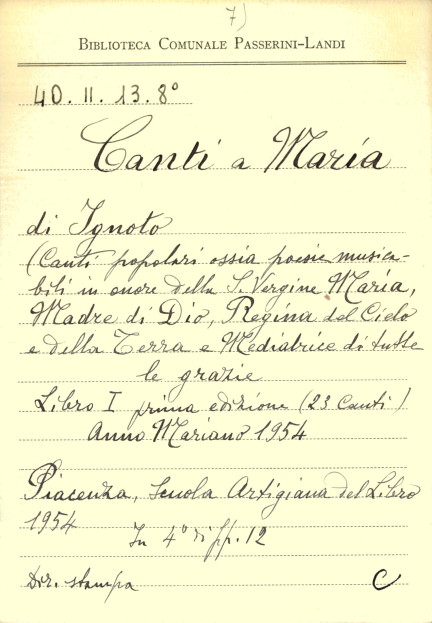 7)
BIBLIOTECA COMUNALE PASSERINI-LANDI
40. II. 13. 8°
Canti a María
di Ignoto
(Canti popolari ossia poesie musica-
bili in onore della S. Vergine María,
Madre di Dio, Regina del Cielo
e della Terra e Mediatrice di tutte
le grazie
Libro I prima edizione (23 Canti)
Anno Mariano 1954
Piacenza, Scuola Artigiana del Libro
1954
In 4° di pp. 12
Dir. stampa
C